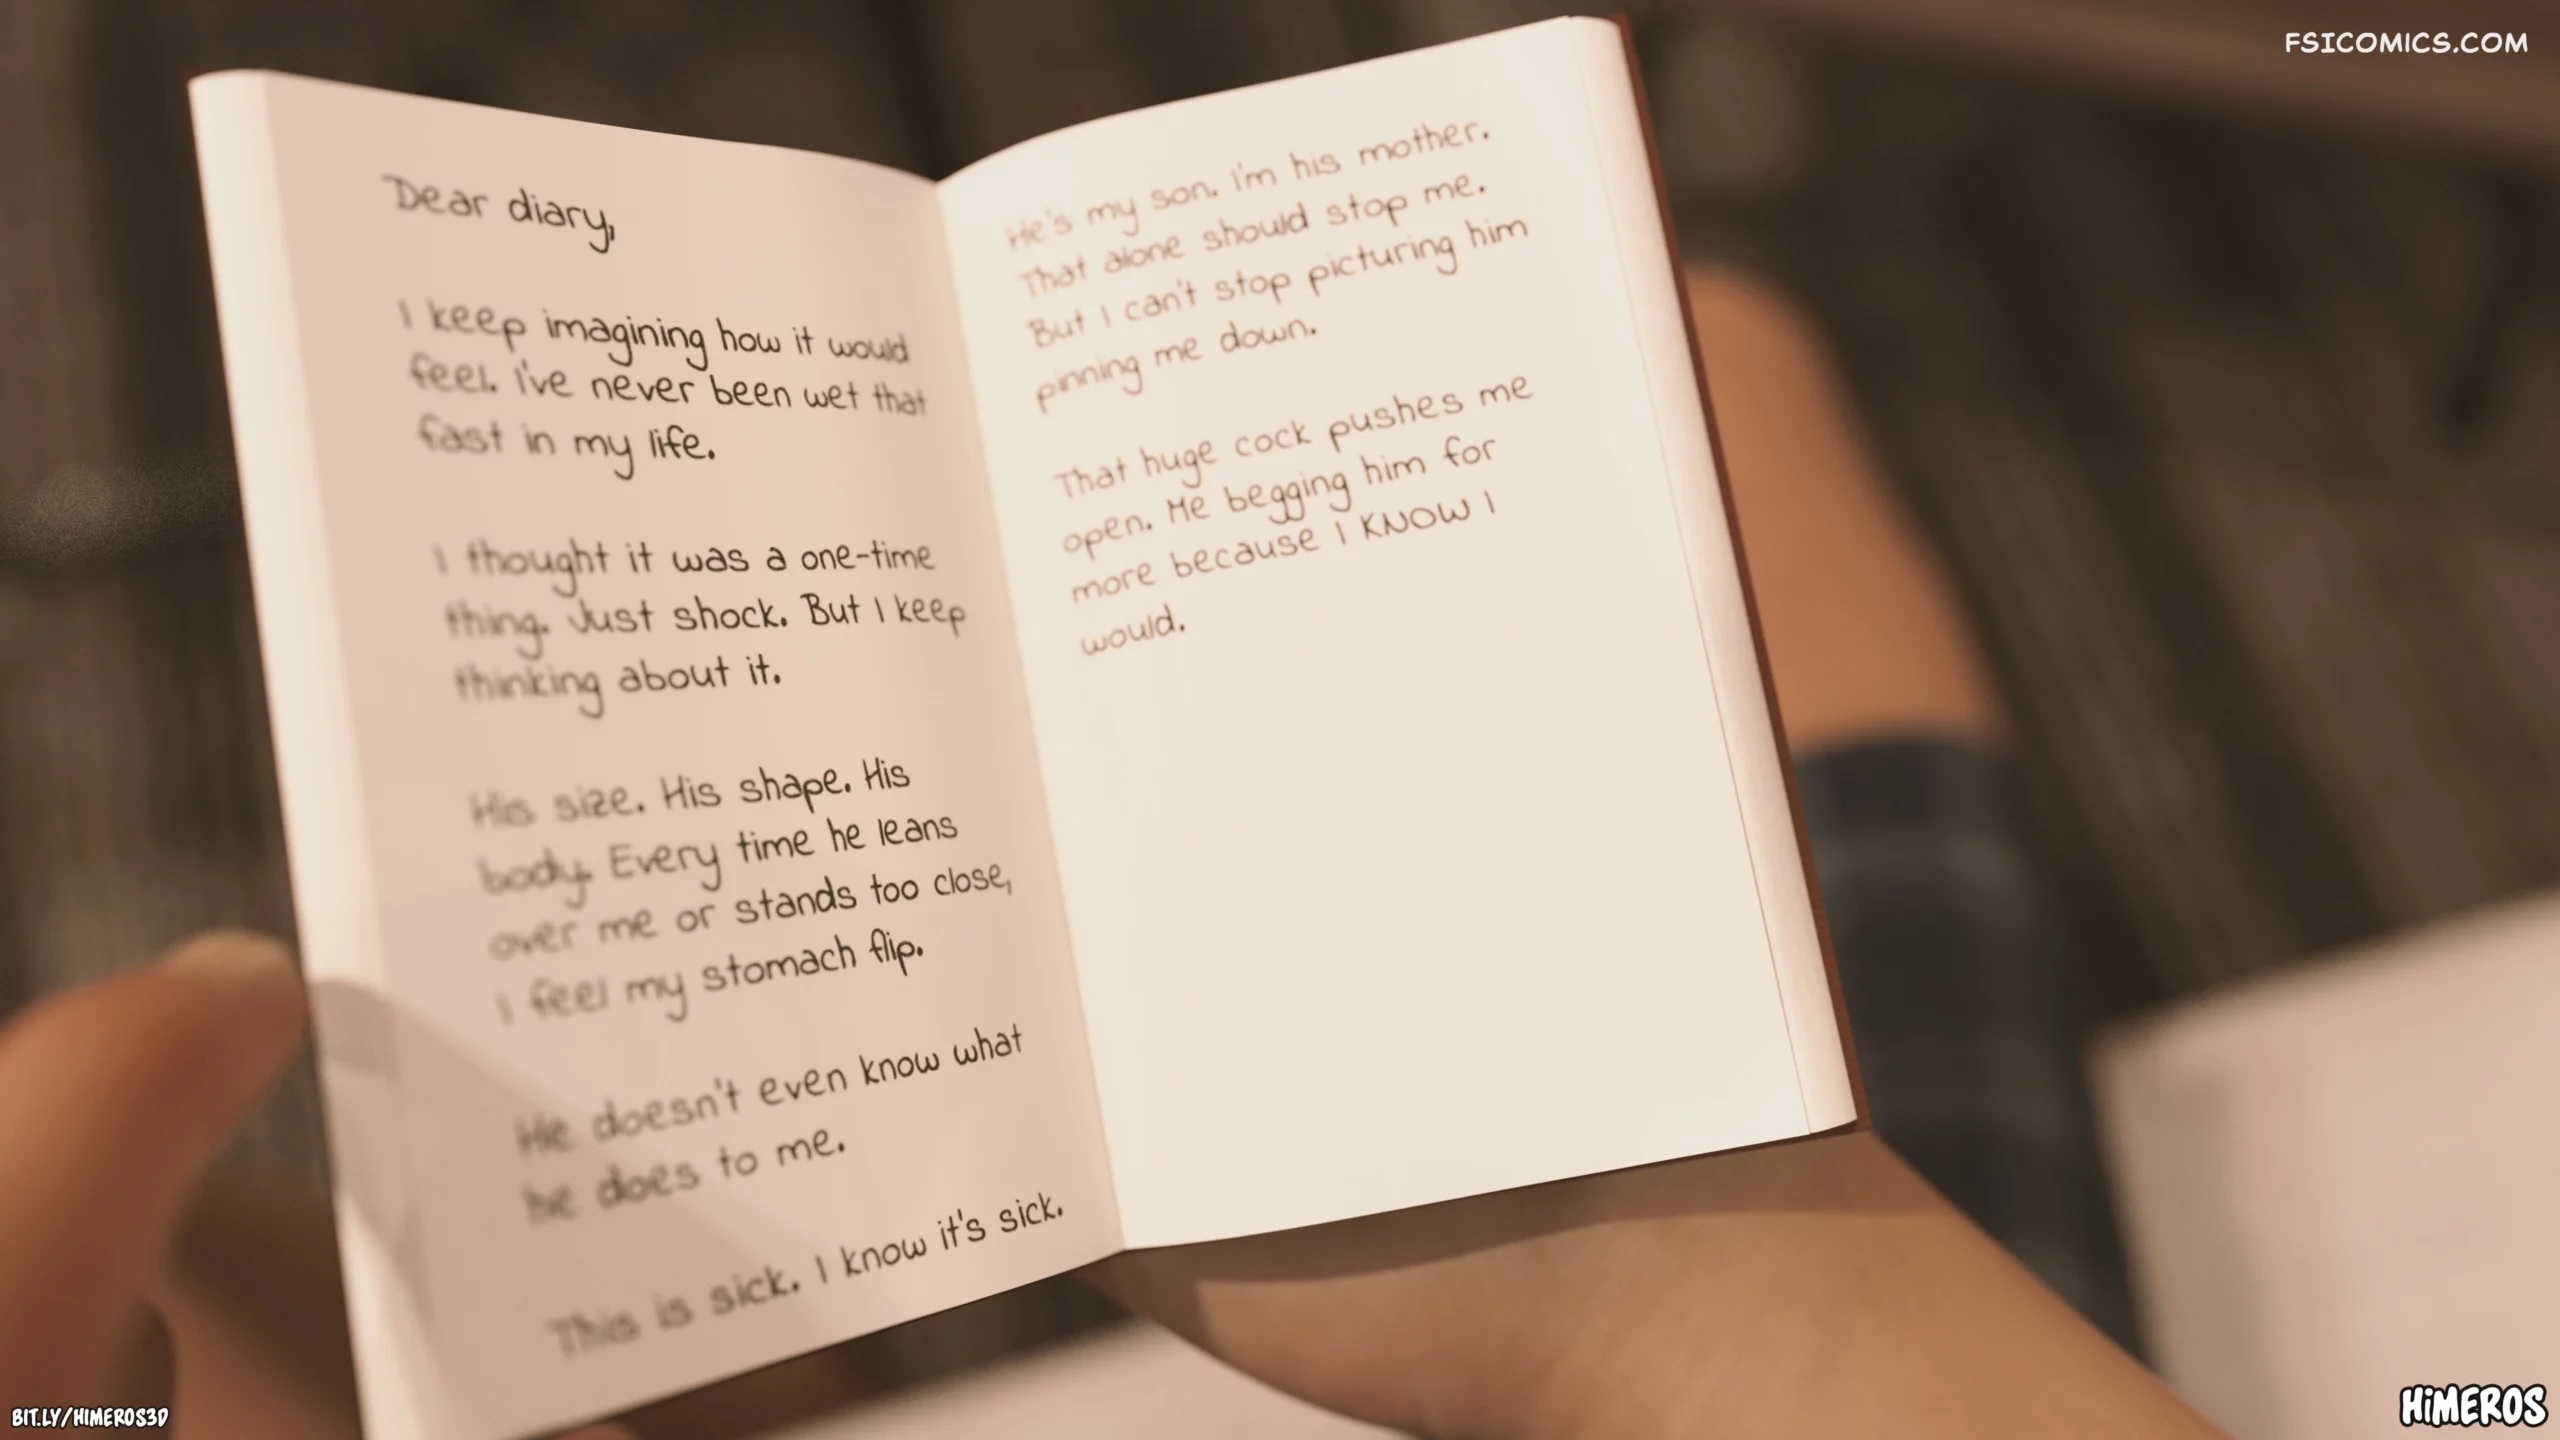 FSICOMICS.COM
Dear diary,
I keep imagining how it would
feel. I've never been wet that
fast in my life.
I thought it was a one-time
thing. Just shock. But I keep
thinking about it.
His size. His shape. His
body. Every time he leans
over me or stands too close,
I feel my stomach flip.
He doesn't even know what
he does to me.
This is sick. I know it's sick.
He's my son. I'm his mother.
That alone should stop me.
But I can't stop picturing him
pinning me down.
That huge cock pushes me
open. Me begging him for
more because I KNOW I
would.
BIT.LY/HIMEROS3D
HiMEROS